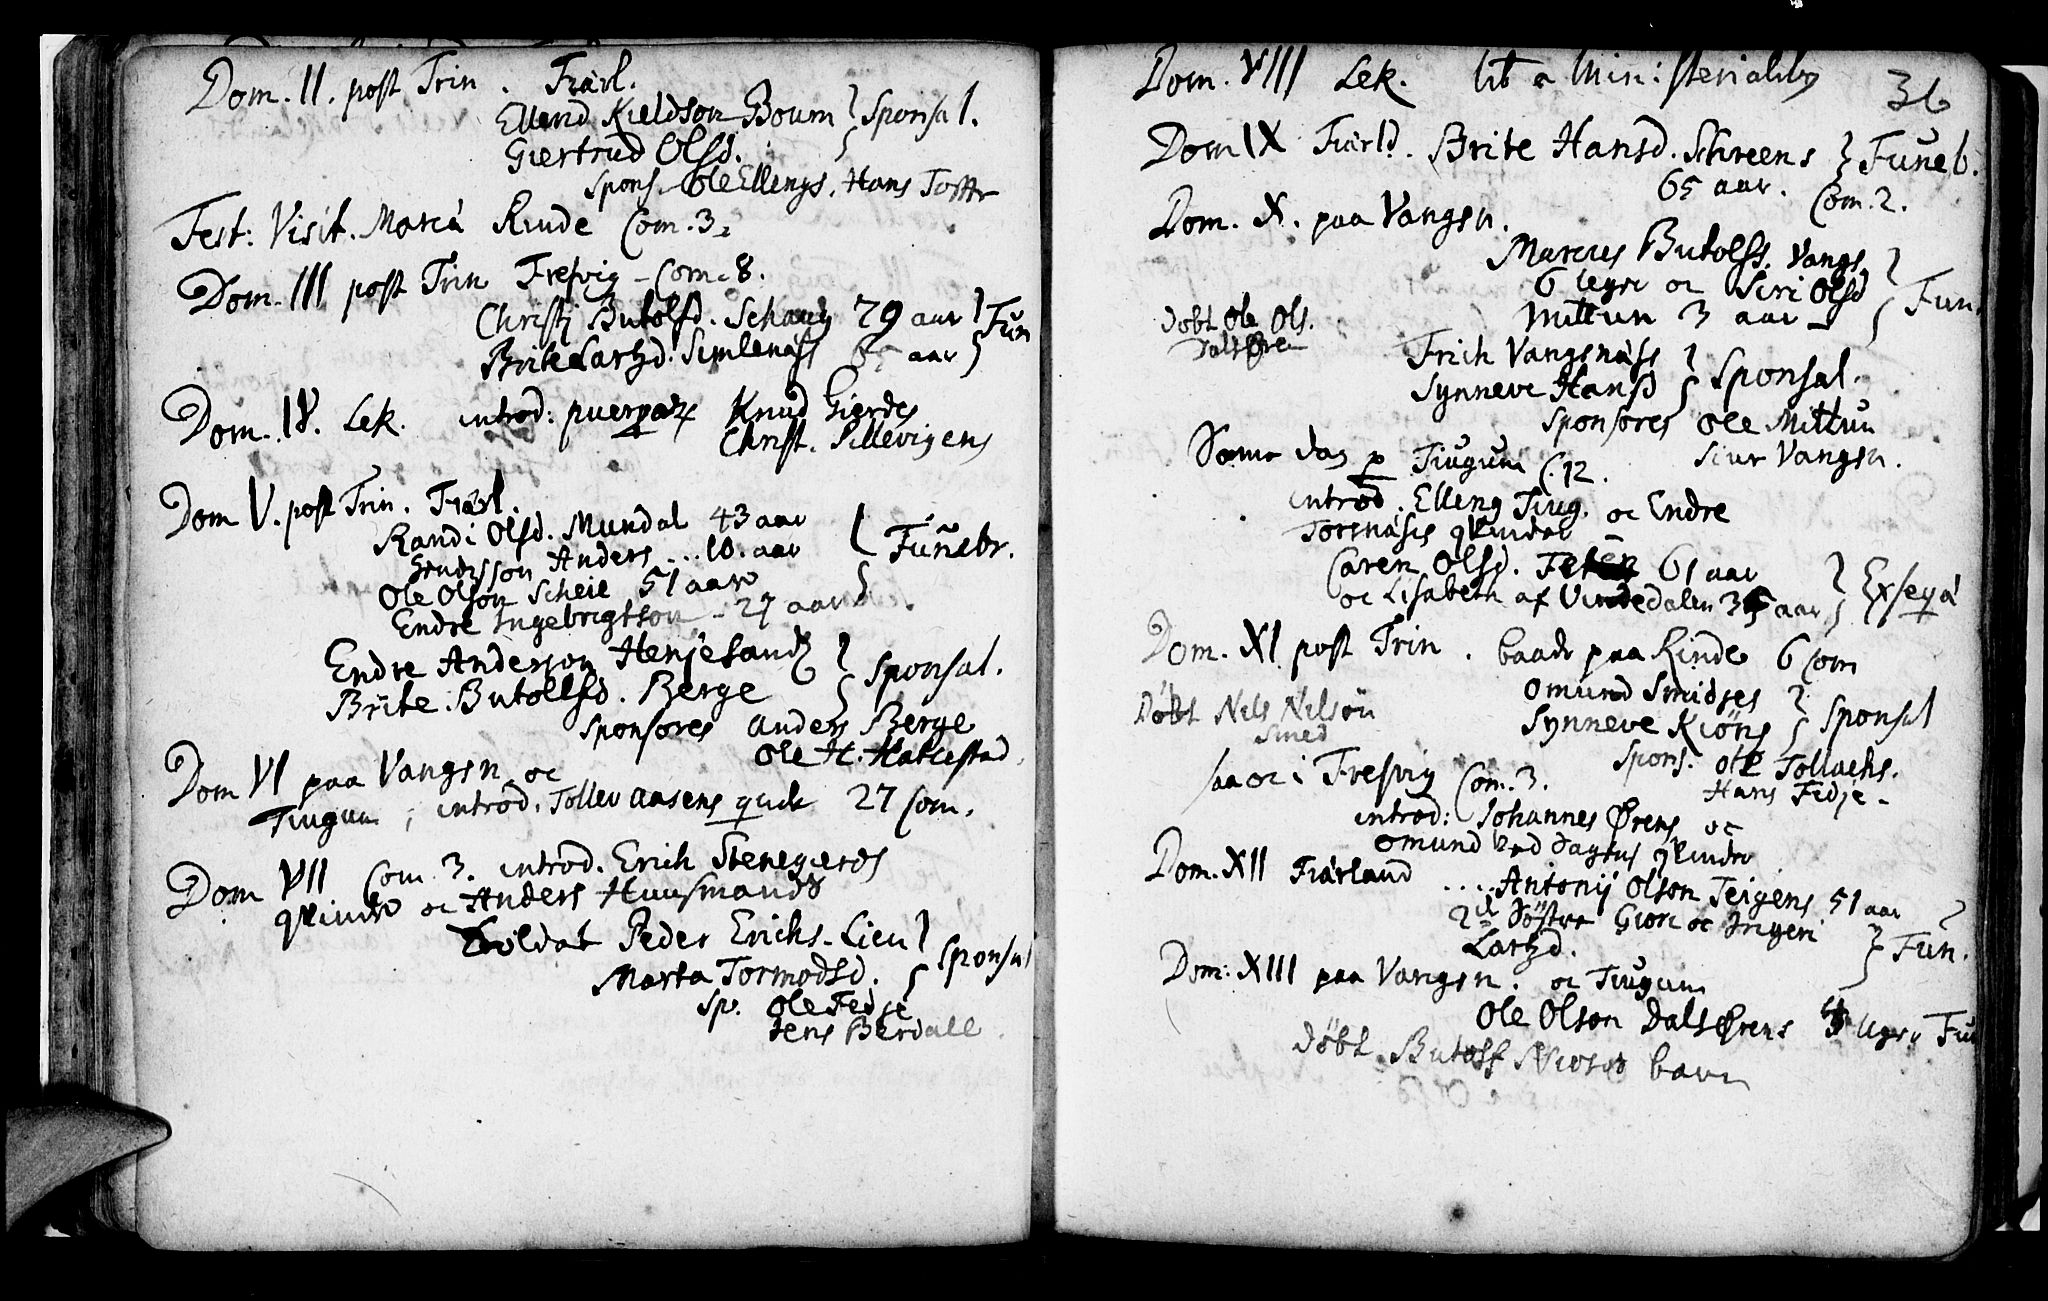 Dom. II. post Trin. Fiærl.
Ellend Kieldson Boum } Sponsal.
Giertrud Olsd.
Spons. Ole Ellengs. Hans
Fest: Visit. Mariâ Rinde Com. 3.
Dom. III post Trin Fresvig - Com. 8.
Christj Butolfsd. 79 aar } Fun
Brite Lartzd. aar
Dom. IV. Lek. introd: Knud Gierdes
Christ. Sillevigens
Dom V. post Trin. Fiærl.
Randi Olsd. Mundal 43 aar } Funebr.
Anders ... 10. aar
Ole Olson Scheie 51 aar
Endre Ingebrigtson - 27 aar
Endre Anderson Henjesand } Sponsal.
Brite Butollsd. Berge
Sponsores Anders Berge
Ole H. Hatlestad
Dom VI paa Vangsn oc
Tiugum; introd. Tollev Aasens qvide 27 Com.
Dom VII Com 3. introd. Erich Stenegierds
qvinde oc Anders Huusmands
Soldat Peder Erichs. Lien } Sponsal
Marta Tormodsd.
Sp. Ole Fedje
Jens Berdall.
Dom. VIII Lek. lib a Ministerialib
36
Dom IX Fiærld. Brite Hansd. Schreens } Funeb.
65 aar. Com. 2.
Dom. X. paa Vangsn.
Marcus Butolfs. Vangs } Fun.
6 uger oc Siri Olsd
Mittun 3 aar
Døbt Ole Ols.
Dalsøre
Erich Vangsnæss } Sponsal.
Synneve Hansd
Sponsores Ole Mittun
Siur Vangsn.
Samme dag p Tiugum C 12.
introd. Elleng Tiug. oc Endre
Torsnæsis qvinder
Caren Olsd. 61 aar } Exseqiâ
oc Lisabeth af Vindedalen aar
Dom. XI post Trin. baade paa Rinde 6 Com
Omund Smidjes } Sponsal
Synneve Kiöns
Døbt Nels Nelsøn
Smed
Spons. Ole Tollachs.
Hans Fedje -
saa oc i Fresvig Com. 3.
introd: Johannes Ørens oc
Omund qvinder
Dom. XII Fiærland .... Antonij Olson Teigens 51 aar
2de Söstre Giori oc Ingeri } Fun.
Lartzd.
Dom: XIII paa Vangsn. oc Tiugum
Ole Olson Dalsørens uger Fun
döbt Butolf barn